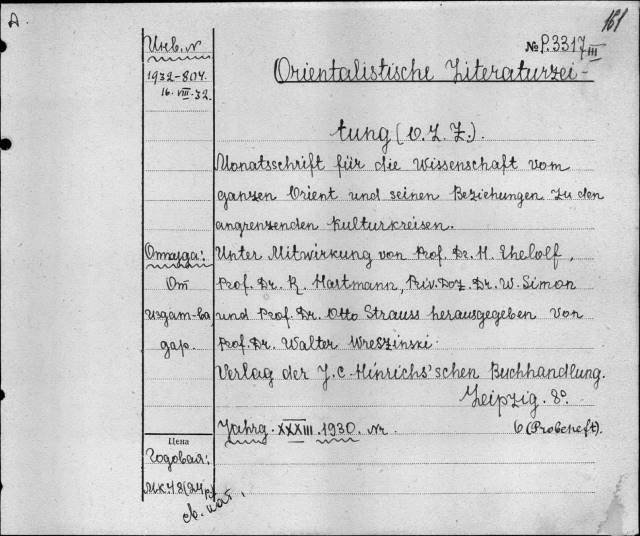 A
161
Инв. N
№ P.3317 III
1932-804.
16. VIII. 32.
Orientalistische Literaturzei-
tung (O. L. Z.).
Monatsschrift für die Wissenschaft vom
ganzen Orient und seinen Beziehungen zu den
angrenzenden Kulturkreisen.
Откуда: Unter Mitwirkung von Prof. Dr. H. Ehelolf,
От Prof. Dr. R. Hartmann, Priv. Doz. Dr. W. Simon
издат-ва und Prof. Dr. Otto Strauss herausgegeben von
дар. Prof. Dr. Walter Wreszinski.
Verlag der J. C. Hinrichs'schen Buchhandlung.
Leipzig. 8°.
Jahrg. XXXIII. 1930. Nr. 6 (Probeheft).
Цена
Годовая:
MK. 48 (24
св. кат.